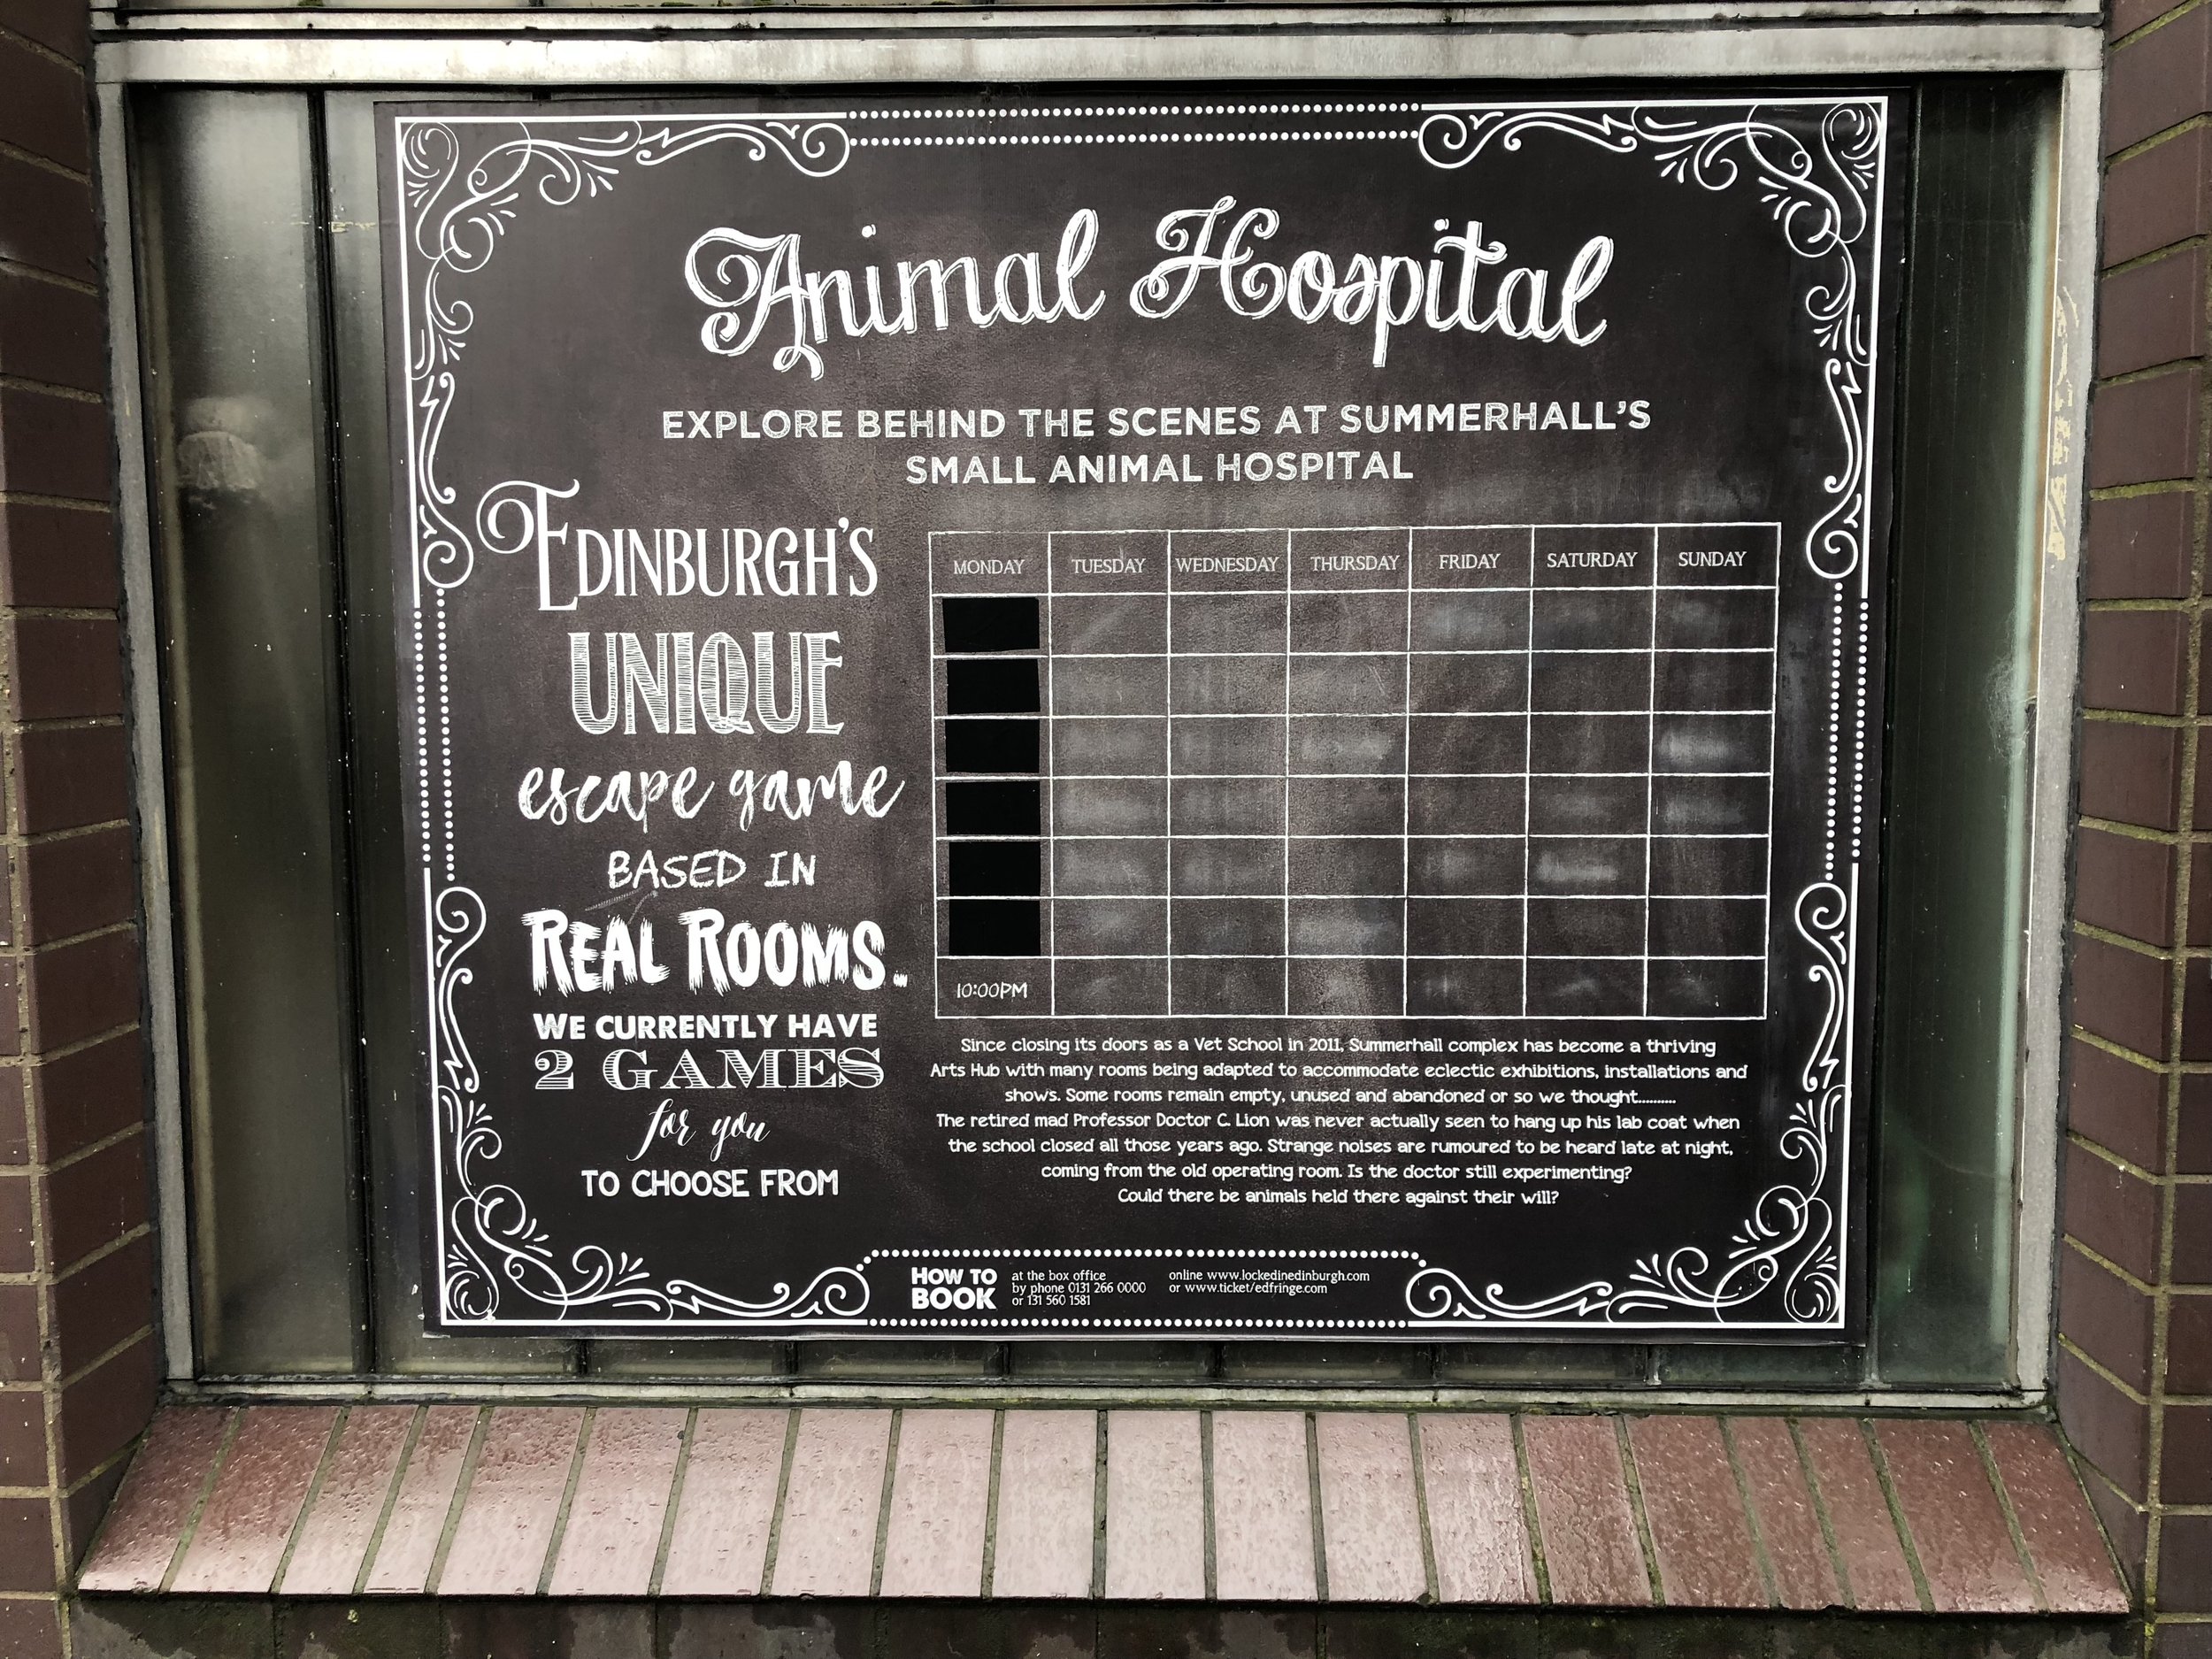 Animal Hospital
EXPLORE BEHIND THE SCENES AT SUMMERHALL'S
SMALL ANIMAL HOSPITAL
EDINBURGH'S
UNIQUE
escape game
BASED IN
REAL ROOMS.
WE CURRENTLY HAVE
2 GAMES
for you
TO CHOOSE FROM
MONDAY TUESDAY WEDNESDAY THURSDAY FRIDAY SATURDAY SUNDAY
10:00PM
Since closing its doors as a Vet School in 2011, Summerhall complex has become a thriving
Arts Hub with many rooms being adapted to accommodate eclectic exhibitions, installations and
shows. Some rooms remain empty, unused and abandoned or so we thought..........
The retired mad Professor Doctor C. Lion was never actually seen to hang up his lab coat when
the school closed all those years ago. Strange noises are rumoured to be heard late at night,
coming from the old operating room. Is the doctor still experimenting?
Could there be animals held there against their will?
HOW TO
BOOK
at the box office
by phone 0131 266 0000
or 131 560 1581
online www.lockedinedinburgh.com
or www.ticket/edfringe.com